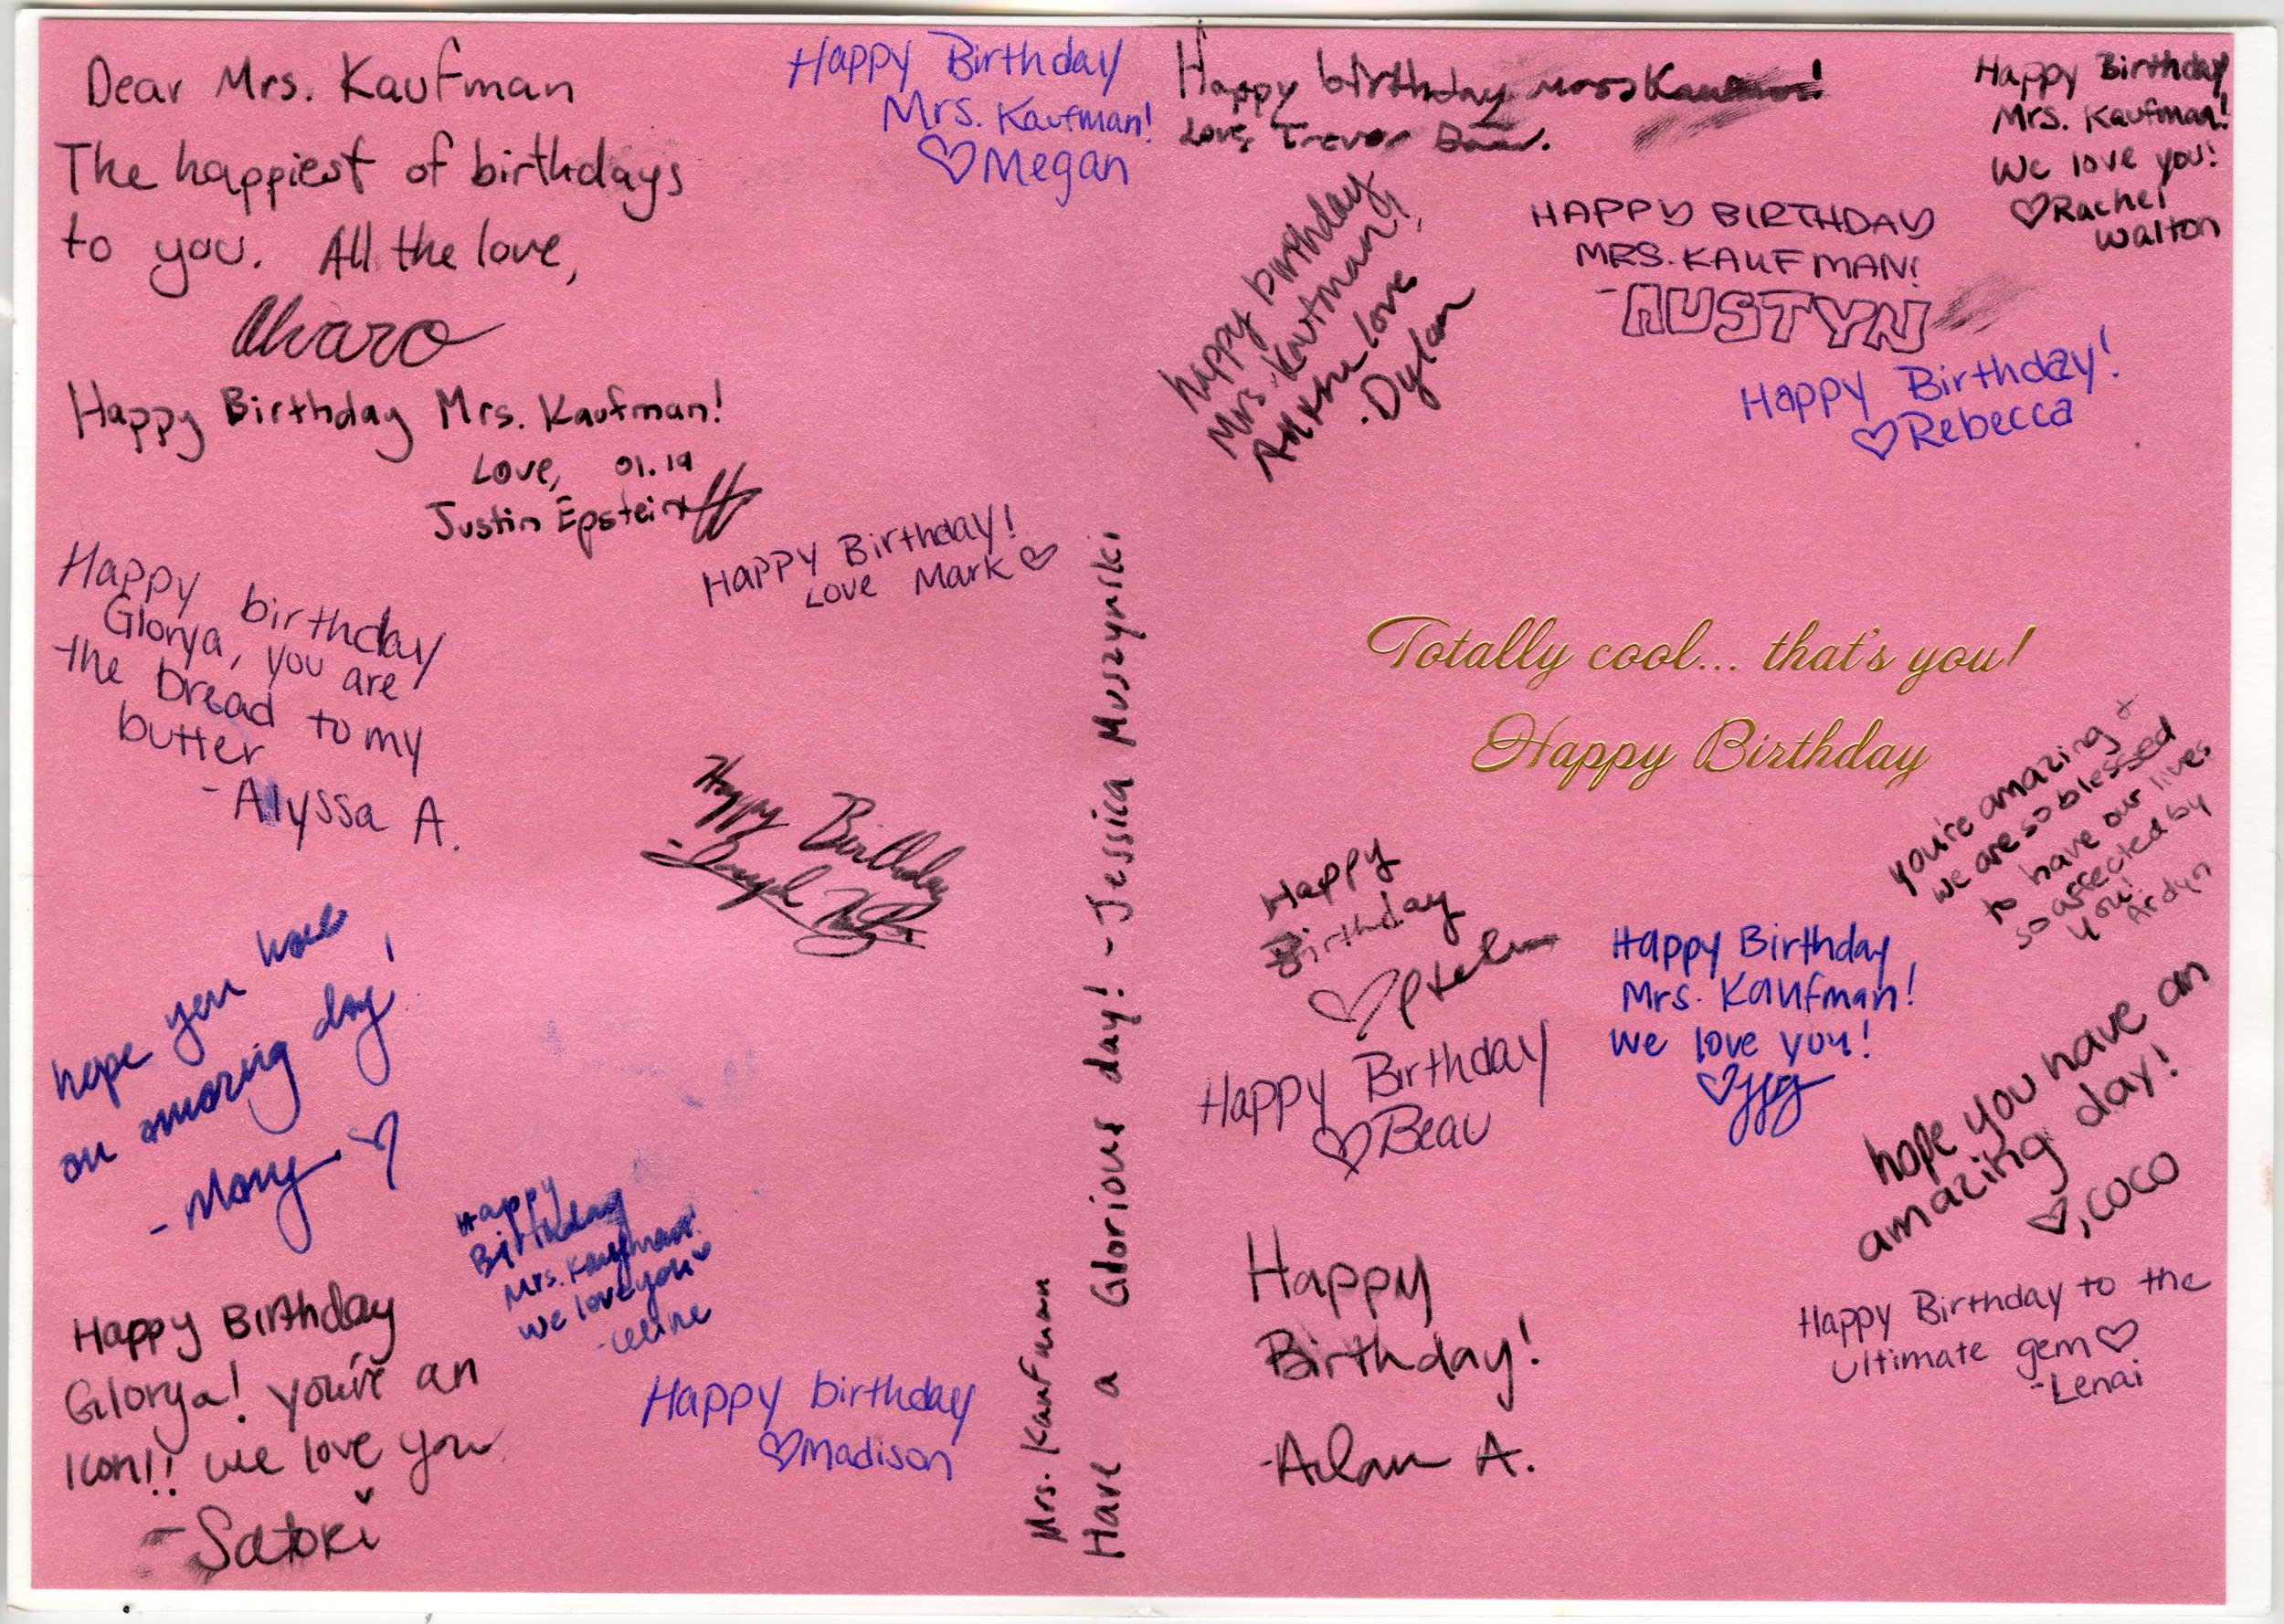 Dear Mrs. Kaufman
The happiest of birthdays
to you. All the love,
Alvaro
Happy Birthday Mrs. Kaufman!
Love, 01.19
Justin Epstein
Happy birthday
Glorya, you are
the bread to my
butter
-Alyssa A.
hope you have
an amazing day!
-Mary
Happy Birthday
Glorya! you're an
Icon!! we love you
-Satoki
Happy Birthday
Mrs. Kaufman!
♡Megan
Happy Birthday!
Love Mark ♡
Happy Birthday
Happy
Birthday
Mrs. Kaufman!
we love you
-Celine
Happy birthday
♡Madison
Mrs. Kaufman
Have a Glorious day! -Jessica Muszynski
Happy birthday
Love, Trevor
happy birthday
Mrs. Kaufman!
All the love
.Dylan
HAPPY BIRTHDAY
MRS. KAUFMAN!
-AUSTYN
Happy Birthday
Mrs. Kaufman!
We love you!
♡Rachel
Walton
Happy Birthday!
♡Rebecca
Totally cool... that's you!
Happy Birthday
you're amazing +
we are so blessed
to have our lives
so affected by
you!
Ardyn
Happy
Birthday
♡
Happy Birthday
Mrs. Kaufman!
we love you!
♡
Happy Birthday
♡Beau
hope you have an
amazing day!
♡, COCO
Happy
Birthday!
-Adam A.
Happy Birthday to the
ultimate gem♡
-Lenai